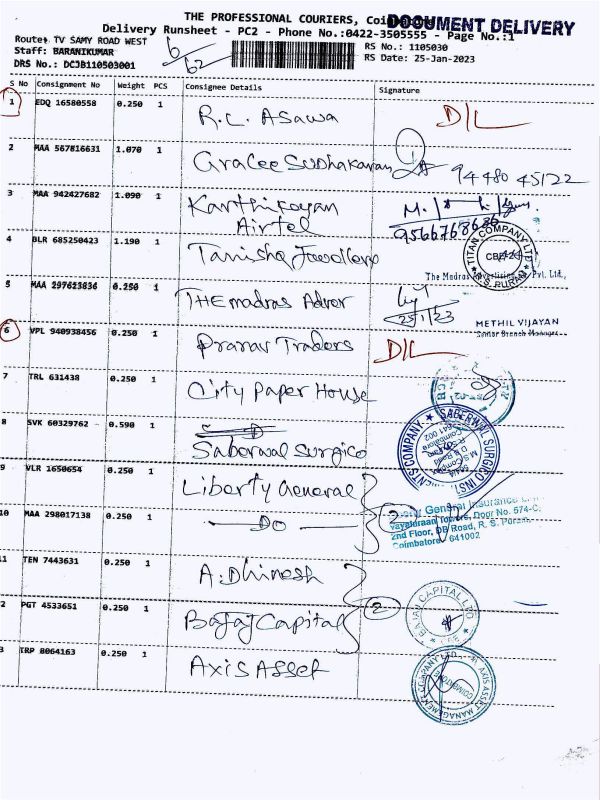 THE PROFESSIONAL COURIERS, Coimbatore
DOCUMENT DELIVERY
Delivery Runsheet - PC2 - Phone No.:0422-3505555 - Page No.:1
Route: TV SAMY ROAD WEST
RS No.: 1105030
Staff: BARANIKUMAR
6/62
RS Date: 25-Jan-2023
DRS No.: DCJB110503001
S No Consignment No Weight PCS Consignee Details Signature
1 EDQ 16580558 0.250 1 R.L. Asawa D/L
2 MAA 567816631 1.070 1 Gralee Sudhakaran 94480 45122
3 MAA 942427682 1.090 1 Karthikeyan
Airtel 9566768686
4 BLR 685250423 1.190 1 Tanishq Jewellery
TITAN COMPANY LTD
R.S. PURAM
The Madras Advertising Pvt. Ltd.,
5 MAA 297623836 0.250 1 THE madras Adver 25/1/23
METHIL VIJAYAN
Senior Branch Manager
6 VPL 940938456 0.250 1 Pranav Traders D/L
7 TRL 631438 0.250 1 City Paper House
8 SVK 60329762 0.590 1 Saberwal Surgico
SABERWAL SURGICO INSTRUMENTS COMPANY
9 VLR 1650654 0.250 1 Liberty General
2
General Insurance
10 MAA 298017138 0.250 1 Do
Towers, Door No. 574-C,
2nd Floor, DB Road, R. S. Puram,
Coimbatore - 641002
11 TEN 7443631 0.250 1 A. Dhinesh
2
12 PGT 4533651 0.250 1 Bajaj Capital
BAJAJ CAPITAL LTD
13 TRP 8064163 0.250 1 Axis Asset
AXIS ASSET MANAGEMENT COMPANY LTD
COIMBATORE